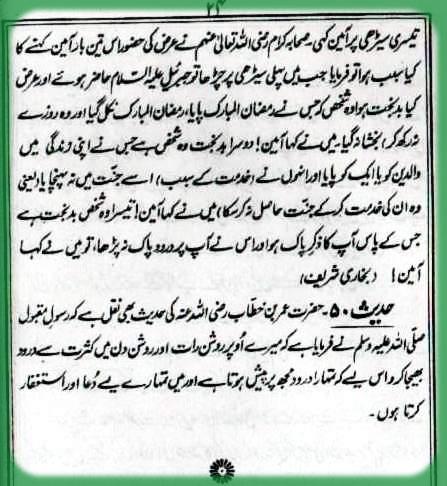 ۲۶
تیسری سیڑھی پر آمین کہی۔ صحابہ کرام رضی اللہ تعالیٰ عنہم نے عرض کی حضور اس تین بار آمین کہنے کا
کیا سبب ہوا تو فرمایا جب میں پہلی سیڑھی پر چڑھا تو جبرئیل علیہ السلام حاضر ہوئے اور عرض
کیا بدبخت ہوا وہ شخص کہ جس نے رمضان المبارک پایا، رمضان المبارک نکل گیا اور وہ روزے
نہ رکھ کر بخشا نہ گیا۔ میں نے کہا آمین! دوسرا بدبخت وہ شخص ہے جس نے اپنی زندگی میں
والدین کو یا ایک کو پایا اور انہوں نے (خدمت کے سبب) اسے جنت میں نہ پہنچایا (یعنی
وہ ان کی خدمت کر کے جنت حاصل نہ کر سکا) میں نے کہا آمین! تیسرا وہ شخص بدبخت ہے
جس کے پاس آپ کا ذکر پاک ہوا اور اس نے آپ پر درود پاک نہ پڑھا، تو میں نے کہا
آمین! (بخاری شریف)
حدیث ۵۰۔ حضرت عمر بن خطاب رضی اللہ عنہ کی حدیث بھی نقل ہے کہ رسول مقبول
صلی اللہ علیہ وسلم نے فرمایا ہے کہ میرے اوپر روشن رات اور روشن دن میں کثرت سے درود
بھیجا کرو اس لیے کہ تمہارا درود مجھ پر پیش ہوتا ہے اور میں تمہارے لیے دعا اور استغفار
کرتا ہوں۔